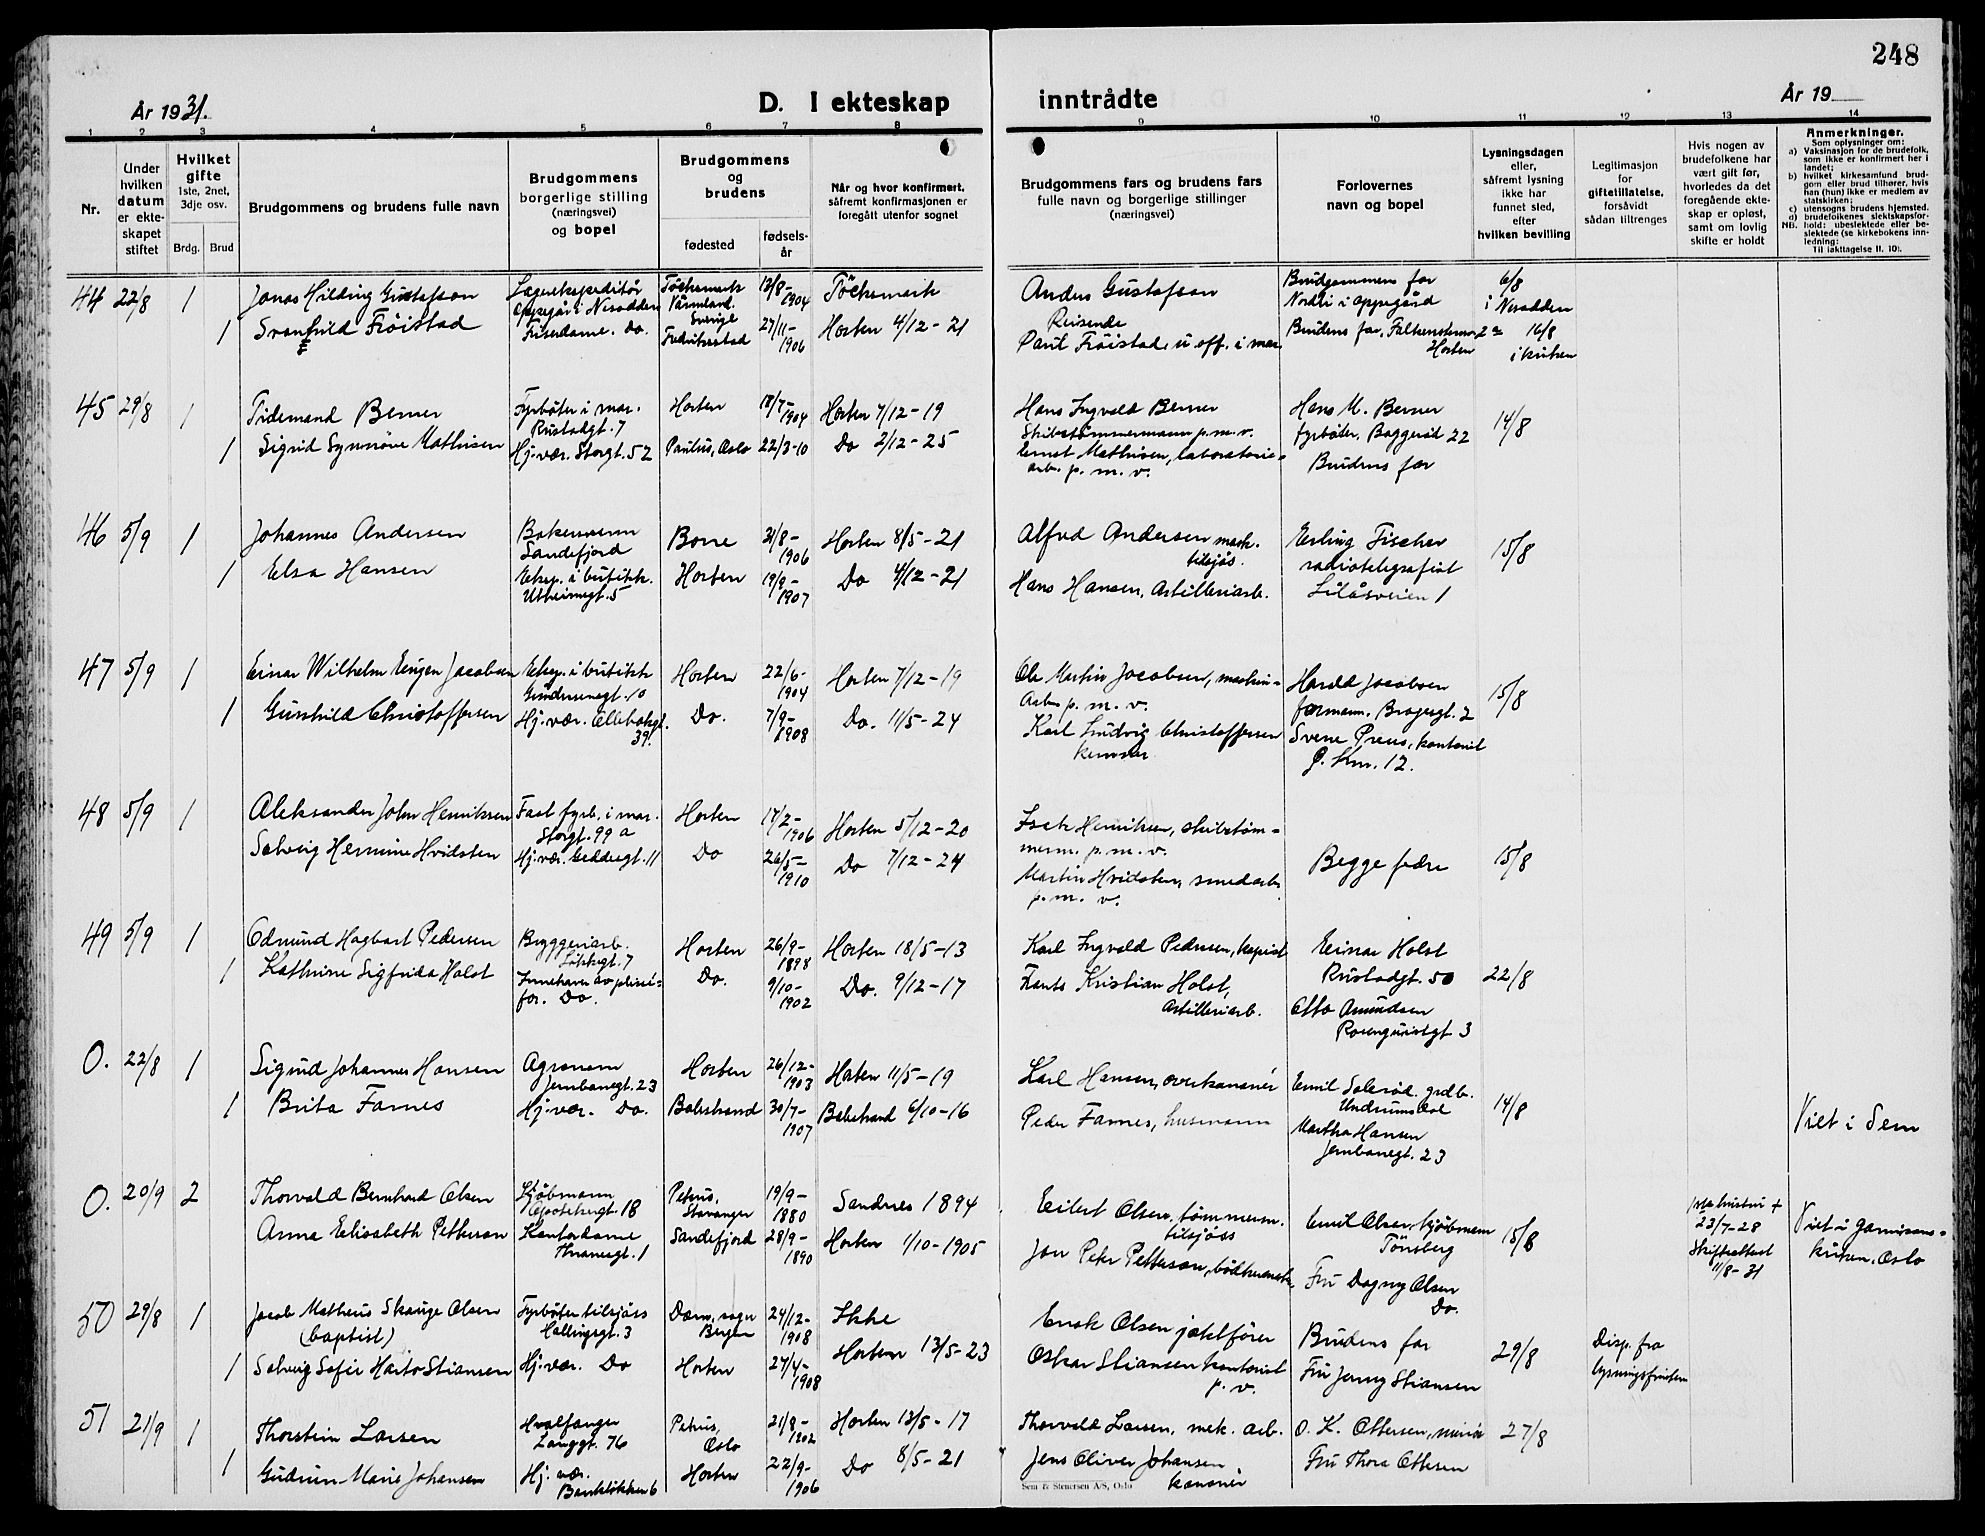 248
År 1931.
D. I ekteskap inntrådte
År 19
1 2 3 4 5 6 7 8 9 10 11 12 13 14
Nr.
Under hvilken datum er ekteskapet stiftet
Hvilket gifte 1ste, 2net, 3dje osv.
Brdg. Brud
Brudgommens og brudens fulle navn
Brudgommens borgerlige stilling (næringsvei) og bopel
Brudgommens og brudens
fødested
fødselsår
Når og hvor konfirmert, såfremt konfirmasjonen er foregått utenfor sognet
Brudgommens fars og brudens fars fulle navn og borgerlige stillinger (næringsvei)
Forlovernes navn og bopel
Lysningsdagen eller, såfremt lysning ikke har funnet sted, efter hvilken bevilling
Legitimasjon for giftetillatelse, forsåvidt sådan tiltrenges
Hvis nogen av brudefolkene har vært gift før, hvorledes da det foregående ekteskap er opløst, samt om lovlig skifte er holdt
Anmerkninger.
Som oplysninger om:
a) Vaksinasjon for de brudefolk, som ikke er konfirmert her i landet;
b) hvilket kirkesamfund brudgom eller brud tilhører, hvis han (hun) ikke er medlem av statskirken;
c) utensogns brudens hjemsted.
d) brudefolkenes slektskapsforhold: ubeslektede eller beslektede (se kirkebokens innledning:
NB.
Til iakttagelse II. 10).
44 22/8 1 Jonas Hilding Gustafsson Lagerekspeditør Oppegård i Nesodden Töcksmark Värmland Sverige 13/8-1904 Töcksmark Anders Gustafsson Reisende Brudgommens far Nordli i Oppegård 6/8 i Nesodden
1 Svanhild Frøistad Friserdame. Do. Fredrikstad 27/11-1906 Horten 4/12-21 Paul Frøistad, u.off. i mar. Brudens far, Falkenstensv. 2a Horten 16/8 i kirken
45 29/8 1 Tidemand Berner Fyrbøter i mar. Rustadgt. 7 Horten 18/7-1904 Horten 7/12-19 Hans Ingvald Berner Skibstømmermann p.m.v. Hans M. Berner fyrbøter, Baggerød 22 14/8
1 Sigrid Synnøve Mathisen Hj. vær. Storgt. 52 Paulus, Oslo 22/3-10 Do 2/12-25 Ernst Mathisen, laboratoriearb. p.m.v. Brudens far
46 5/9 1 Johannes Andersen Bakersvenn Sandefjord Borre 31/8-1906 Horten 8/5-21 Alfred Andersen mask. tilsjøs. Erling Fischer radiotelegrafist Liløsveien 1 15/8
1 Elsa Hansen Eksp. i butikk. Utheimsgt. 5 Horten 19/9-1907 Do 4/12-21 Hans Hansen, Artilleriarb.
47 5/9 1 Einar Wilhelm Eugen Jacobsen Eksp. i butikk Gundersensgt. 10 Horten 22/6-1904 Horten 7/12-19 Ole Martin Jacobsen, maskinarb. p.m.v. Harald Jacobsen formann. Bragesgt. 2 15/8
1 Gunhild Christoffersen Hj. vær. Ollebakgt. 39. Do. 7/9-1908 Do. 11/5-24 Karl Ludvig Christoffersen Sverre Preus, kontorist
48 5/9 1 Aleksander John Henriksen Fast fyrb. i mar. Storgt. 99 a Horten 17/2-1906 Horten 5/12-20 Isak Henriksen, skibstømmerm. p.m.v. Begge fedre 15/8
Solveig Hermine Hvidsten Hj. vær. Geddesgt. 11 Do 26/5-1910 Do 7/12-24 Martin Hvidsten, smedarb. p.m.v.
49 5/9 1 Odmund Hagbart Pedersen Bryggeriarb. Løkkegt. 7 Horten 26/9-1898 Horten 18/5-13 Karl Ingvald Pedersen, Einar Holst Rustadgt. 50 22/8
1 Kathrine Sigfrida Holst Innehaver av for. Do. Do. 9/10-1902 Do. 9/12-17 Frants Kristian Holst, Artilleriarb. Otto Amundsen Rosenquistgt 3
O. 22/8 1 Sigurd Johannes Hansen Agronom Jernbanegt. 23 Horten 26/12-1903 Horten 11/5-19 Karl Hansen, overkanonér Emil Solerød, grdb. Undrumsdal 14/8
1 Brita Farnes Hj. vær. Do. Balestrand 30/7-1907 Balestrand 6/10-16 Peder Farnes, husmann Martha Hansen Jernbanegt. 23 Viet i Sem
O. 20/9 2 Thorvald Bernhard Olsen Kjøbmann Apotekergt. 18 Petrus, Stavanger 19/9-1880 Sandnes 1894 Eilert Olsen, tømmerm. tilsjøss Emil Olsen, kjøbmann Tønsberg 15/8 1ste hustru + 23/7-28 Skifteattest 11/8-31 Viet i Garnisonskirken, Oslo
Anna Elisabeth Petterson Kontordame Thranesgt. 1 Sandefjord 28/9-1890 Horten 1/10-1905 Jon Peter Petterson, Fru Dagny Olsen Do.
50 29/8 1 Jacob Matheus Skauge Olsen (baptist) Fyrbøter tilsjøss Hallingsgt. 3 Dom. sogn Bergen 24/12-1908 Ikke Enok Olsen jaktfører Brudens far 29/8 Disp. fra lysningsfristen
1 Solveig Sofie Stiansen Hj. vær. Do Horten 27/4-1908 Horten 13/5-23 Oskar Stiansen kontorist p.v. Fru Jenny Stiansen
51 21/9 1 Thorstein Larsen Hvalfanger Langgt. 76 Petrus, Oslo 21/9-1902 Horten 13/5-17 Thorvald Larsen, mek. arb. O. K. Ottersen, 27/8
1 Gudrun Marie Johansen Hj. vær. Bankløkken 6 Horten 22/9-1906 Do 8/5-21 Jens Oliver Johansen kanonér Fru Thora Ottesen
Sem & Stenersen A/S, Oslo